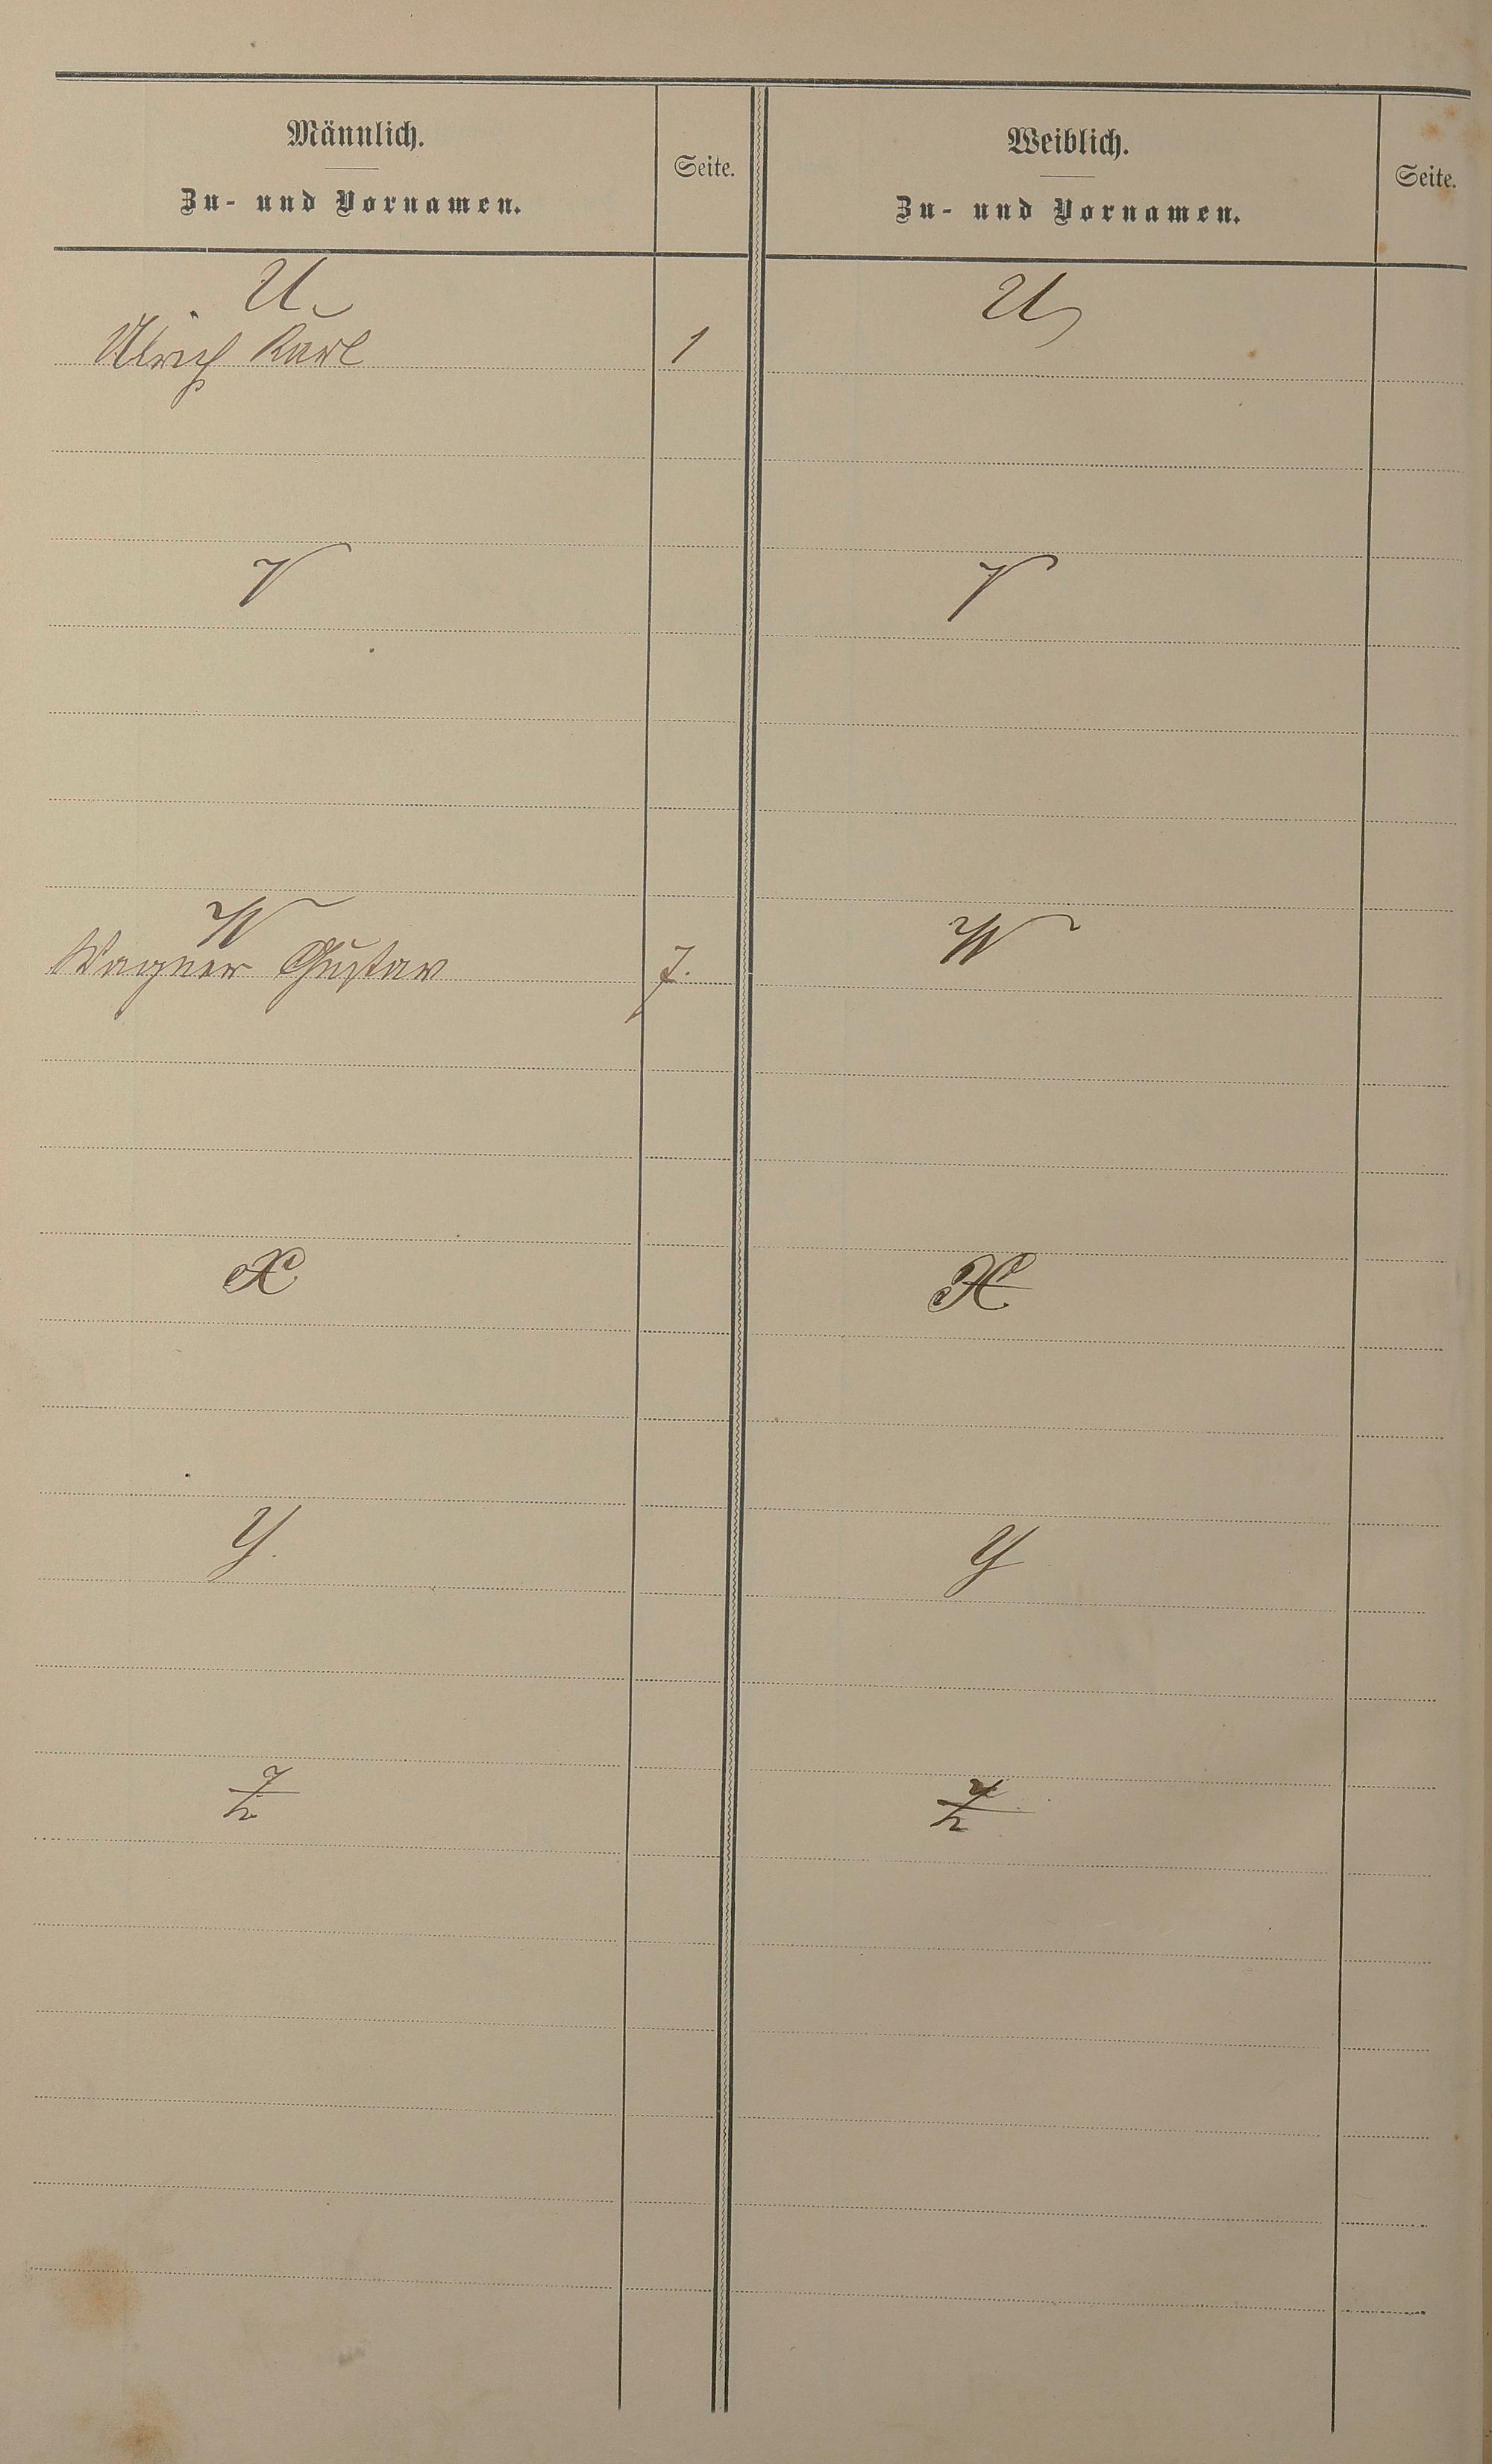 Männlich.
Zu- und Vornamen.
Seite.
Weiblich.
Zu- und Vornamen.
Seite.
U
U
Ulrich Karl 1
V
V
W
W
Wagner Gustav 7.
X
X
Y.
Y
Z
Z